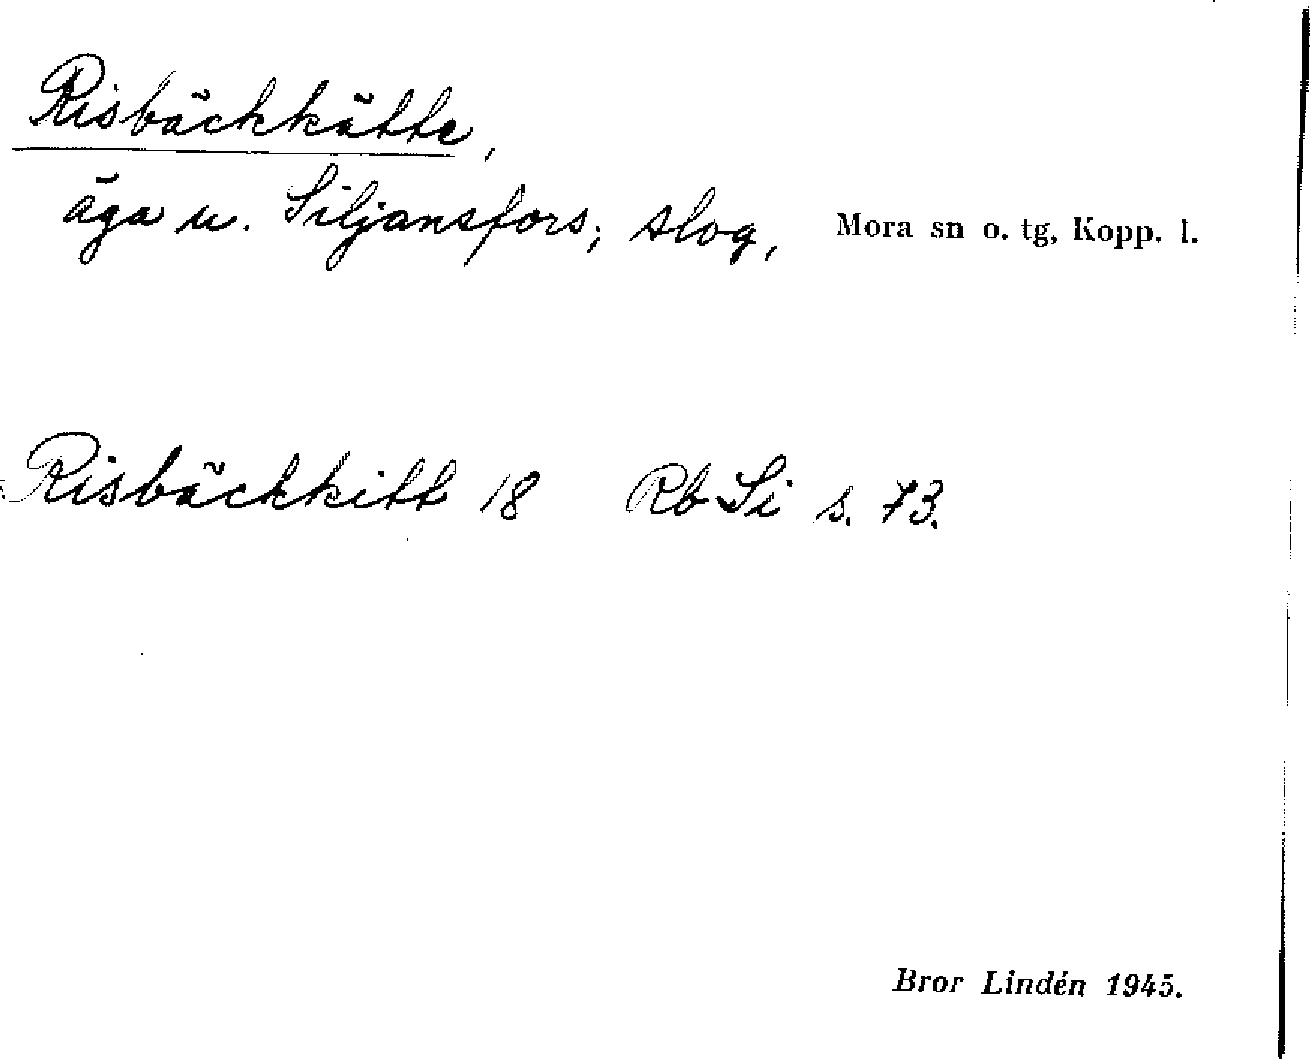 Risbäckkätte,
äga u. Siljansfors; slog, Mora sn o. tg, Kopp. l.
Risbäckkitt 18 Rb Si s. 73.
Bror Lindén 1945.